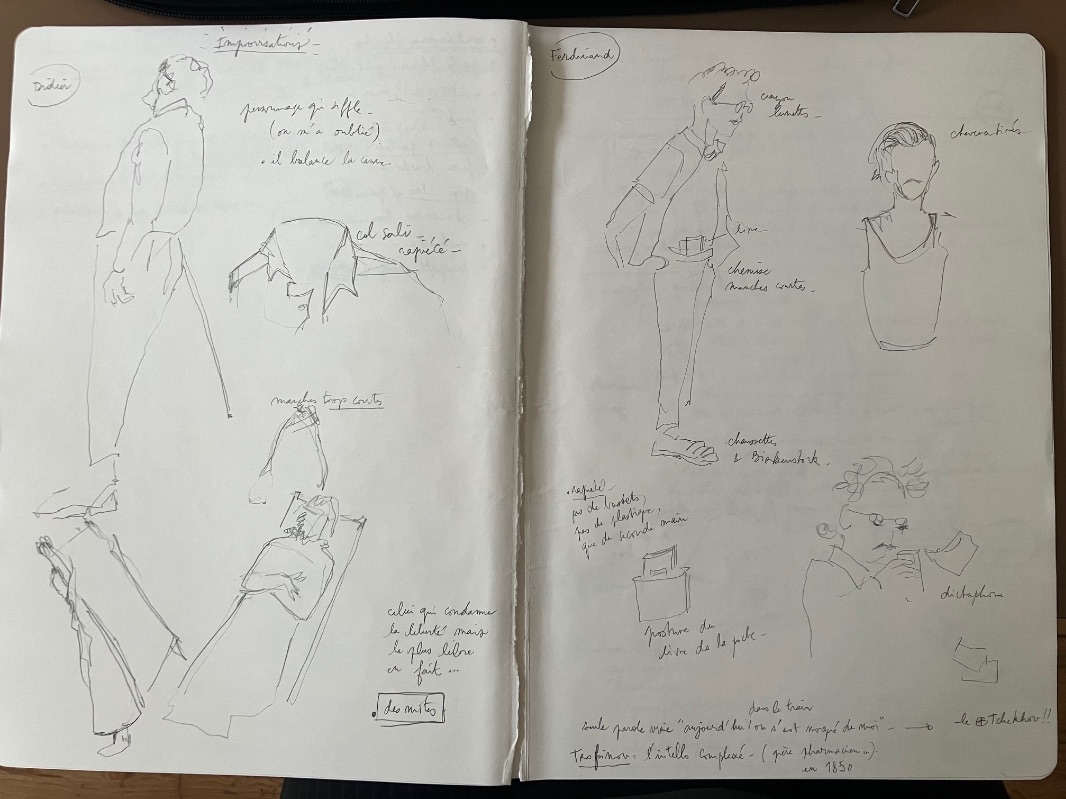 Improvisations
Didier
personnage qui siffle -
(on m'a oublié)
• il balance la canne
col sali -
rapiécé -
manches trop courts
celui qui condamne
la liberté mais
le plus libre
en fait ...
• des mites
Ferdinand
crayon
lunettes -
cheveux tirés
livre -
chemise
manches courtes -
chaussettes
& Birkenstock.
pas de
pas de plastique,
que de seconde main
posture du
livre de la poche -
dictaphone
dans le train
seule parole vraie "aujourd'hui l'on s'est moqué de moi" -
- le + Tchekhov !!
= l'intello complexé - (père pharmacien..)
en 1850